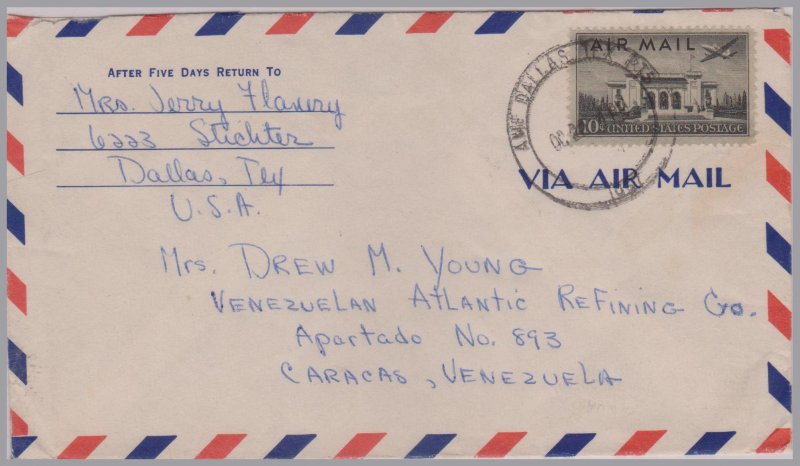 AFTER FIVE DAYS RETURN TO
Mrs. Jerry Flanery
6223 Stichter
Dallas, Tex
U.S.A.
AIR MAIL
10¢ UNITED STATES POSTAGE
DALLAS, TEX.
VIA AIR MAIL
Mrs. DREW M. YOUNG
VENEZUELAN ATLANTIC REFINING Co.
Apartado No. 893
CARACAS, VENEZUELA